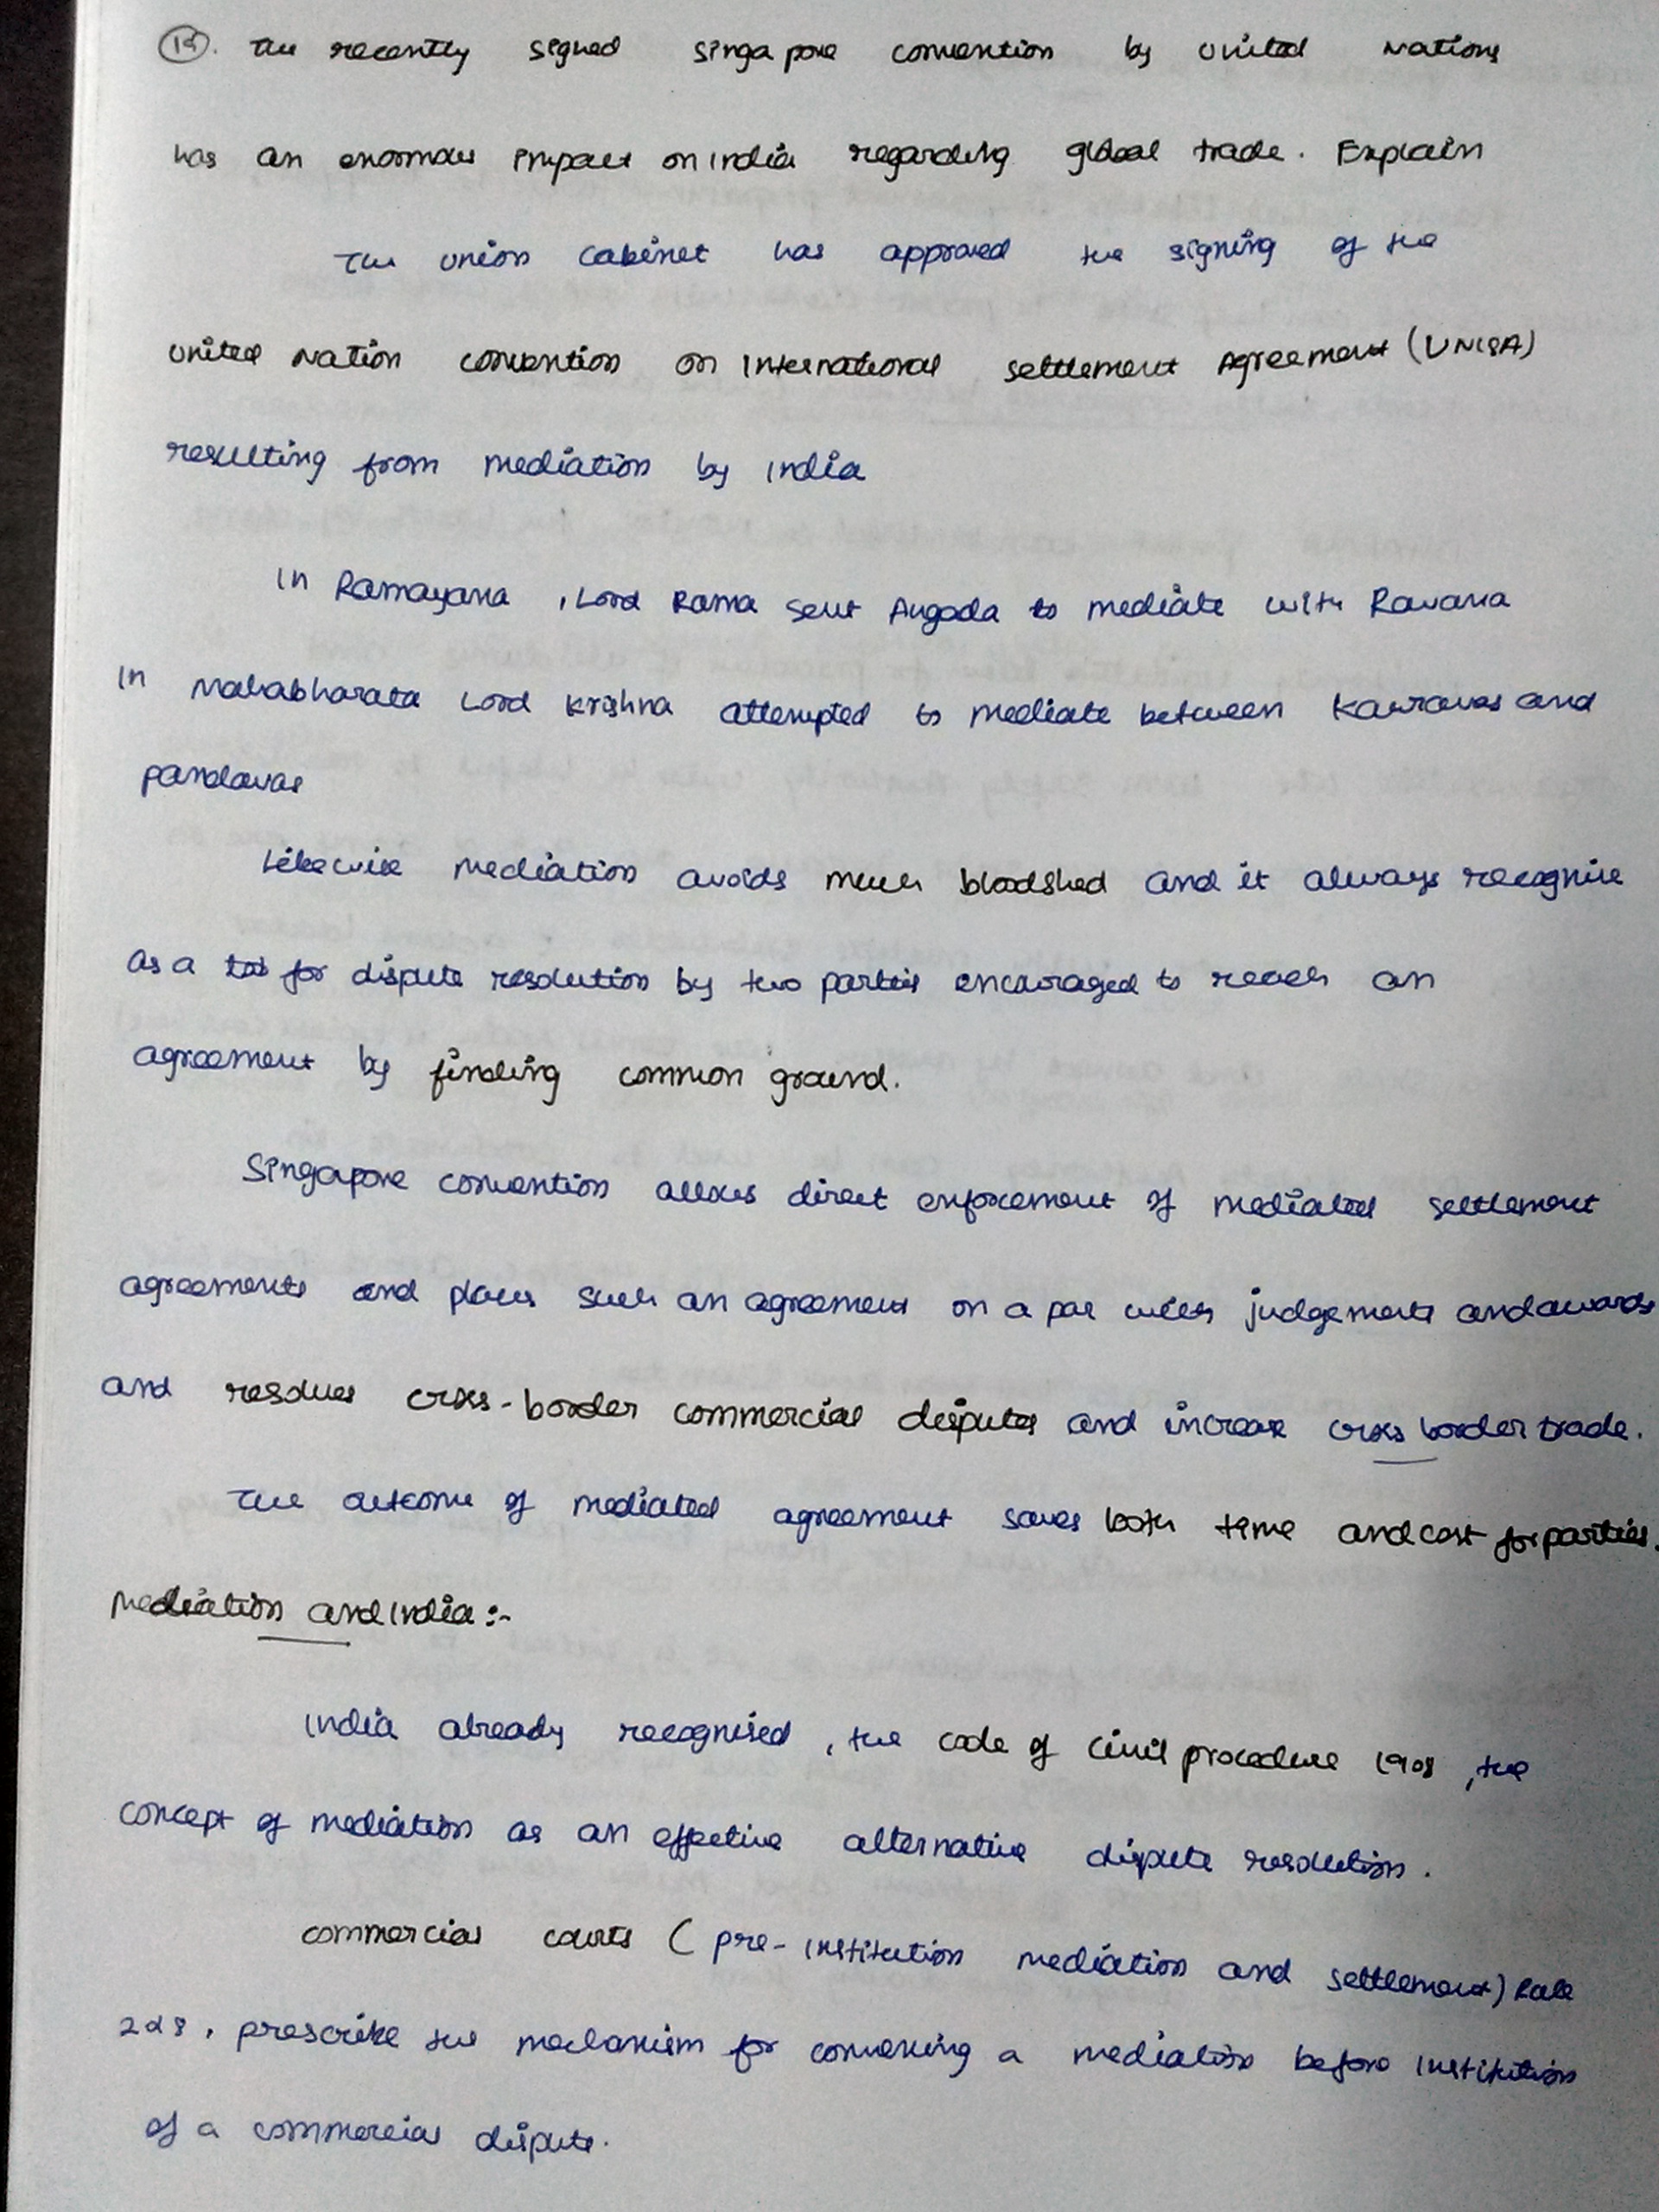 15. The recently signed Singapore convention by United Nations
has an enormous impact on India regarding global trade. Explain
The union cabinet has approved the signing of the
United Nation convention on International settlement Agreement (UNISA)
resulting from mediation by India
In Ramayana, Lord Rama sent Angada to mediate with Ravana
In Mahabharata Lord Krishna attempted to mediate between Kauravas and
pandavas
Likewise mediation avoids much bloodshed and it always recognise
as a for dispute resolution by two parties encouraged to reach an
agreement by finding common ground.
Singapore convention allows direct enforcement of mediated settlement
agreements and places such an agreement on a par with judgements and awards
and resolves cross-border commercial disputes and increase cross border trade.
The outcome of mediated agreement saves both time and cost for parties.
Mediation and India :-
India already recognised, the code of civil procedure 1908, the
concept of mediation as an effective alternative dispute resolution.
commercial courts (pre-institution mediation and settlement) Rule
2018, prescribe the mechanism for convening a mediation before institution
of a commercial dispute.